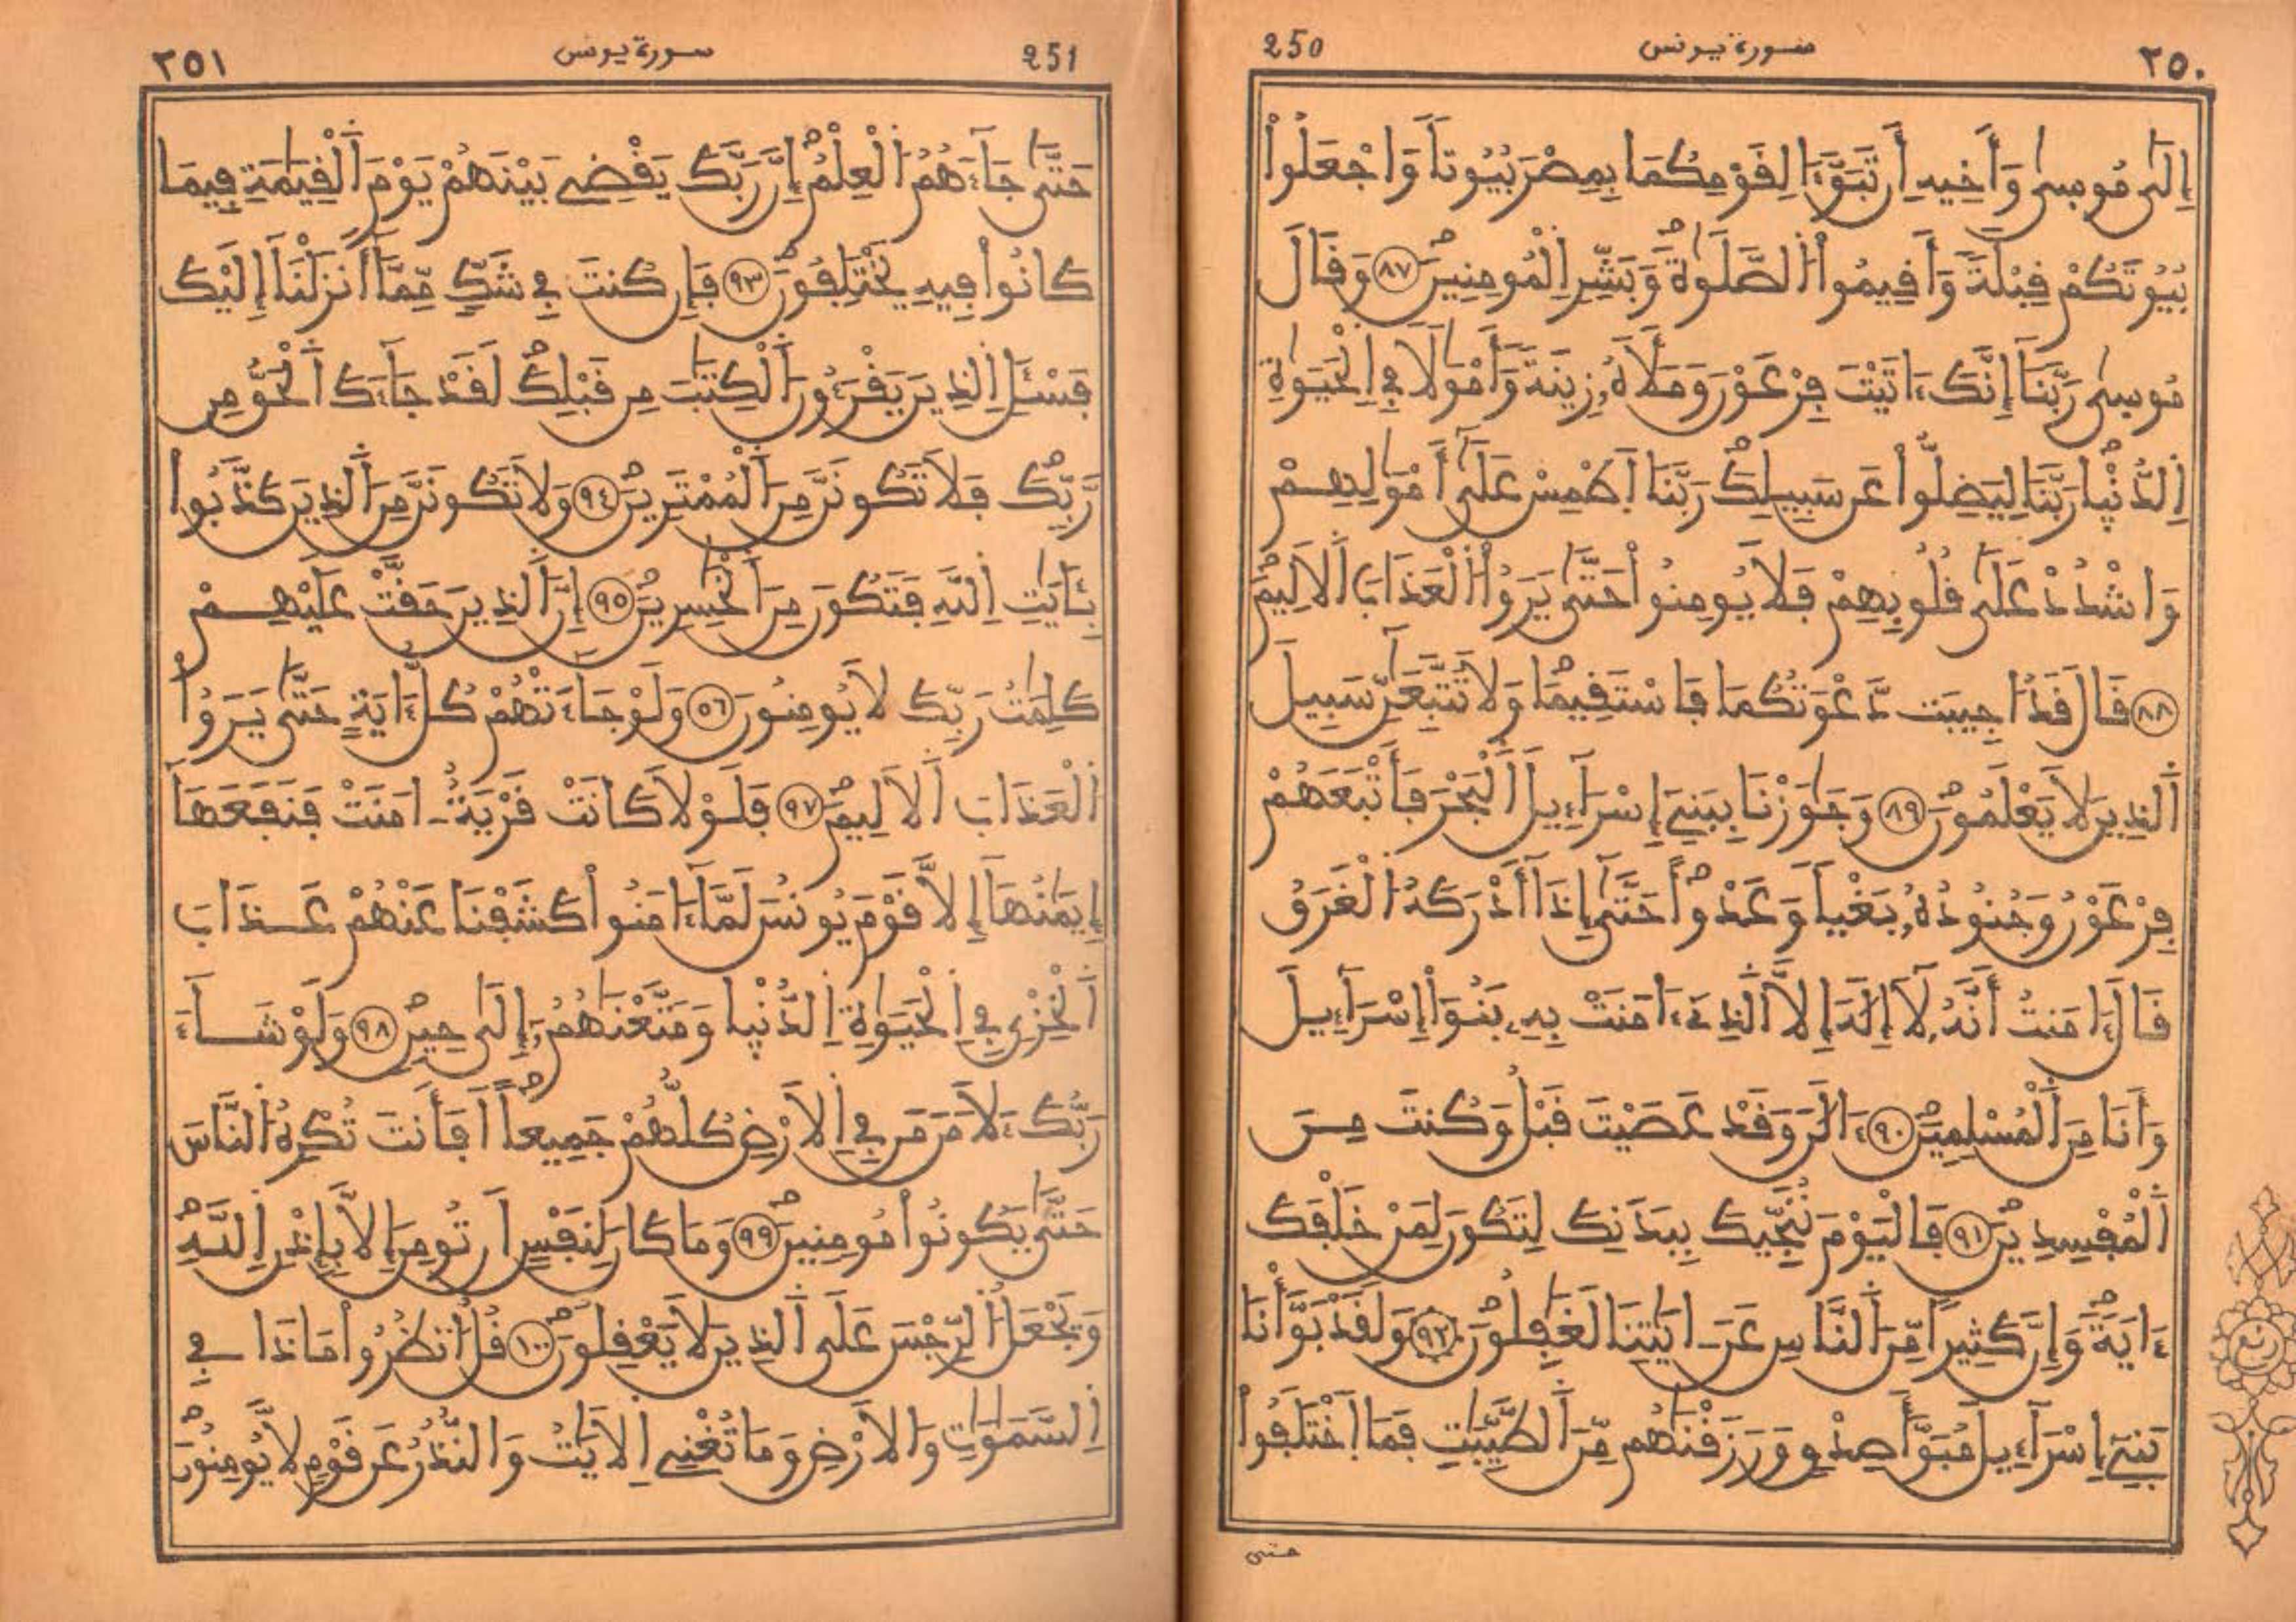 ٢٥٠ سورة يونس 250
إِلَىٰ مُوسىٰ وَأَخِيهِ أَن تَبَوَّءَا لِقَوْمِكُمَا بِمِصْرَ بُيُوتاً وَاجْعَلُواْ
بُيُوتَكُمْ قِبْلَةً وَأَقِيمُواْ الصَّلَوٰةَ وَبَشِّرِ الْمُومِنِينَ ٨٧ وَقَالَ
مُوسىٰ رَبَّنَا إِنَّكَ ءَاتَيْتَ فِرْعَوْنَ وَمَلَأَهُ زِينَةً وَأَمْوَٰلًا فِي الْحَيَوٰةِ
الدُّنْيا رَبَّنَا لِيَضِلُّواْ عَن سَبِيلِكَ رَبَّنَا اَطْمِسْ عَلَىٰ أَمْوَٰلِهِمْ
وَاشْدُدْ عَلَىٰ قُلُوبِهِمْ فَلَا يُومِنُواْ حَتَّىٰ يَرَوُاْ الْعَذَابَ اَلَالِيمَ
٨٨ قَالَ قَدُ اجِيبَت دَّعْوَتُكُمَا فَاسْتَقِيمَا وَلَا تَتَّبِعَٰنِّ سَبِيلَ
اَلذِينَ لَا يَعْلَمُونَ ٨٩ وَجَٰوَزْنَا بِبَنِي إِسْرَآءِيلَ اَلْبَحْرَ فَأَتْبَعَهُمْ
فِرْعَوْنُ وَجُنُودُهُ بَغْياً وَعَدْواً حَتَّىٰ إِذَا أَدْرَكَهُ الْغَرَقُ
قَالَ ءَامَنتُ أَنَّهُ لَا إِلَٰهَ إِلَّا اَلذِي ءَامَنَتْ بِهِ بَنُواْ إِسْرَآءِيلَ
وَأَنَا مِنَ اَلْمُسْلِمِينَ ٩٠ ءَآلَٰنَ وَقَدْ عَصَيْتَ قَبْلُ وَكُنتَ مِنَ
اَلْمُفْسِدِينَ ٩١ فَالْيَوْمَ نُنَجِّيكَ بِبَدَنِكَ لِتَكُونَ لِمَنْ خَلْفَكَ
ءَايَةً وَإِنَّ كَثِيراً مِّنَ اَلنَّاسِ عَنَ ـ ايَٰتِنَا لَغَٰفِلُونَ ٩٢ وَلَقَدْ بَوَّأْنَا
بَنِي إِسْرَآءِيلَ مُبَوَّأَ صِدْقٍ وَرَزَقْنَٰهُم مِّنَ اَلطَّيِّبَٰتِ فَمَا اَخْتَلَفُواْ
حتى
ربع
251 سورة يونس ٢٥١
حَتَّىٰ جَآءَهُمُ الْعِلْمُ إِنَّ رَبَّكَ يَقْضِي بَيْنَهُمْ يَوْمَ اَلْقِيَٰمَةِ فِيمَا
كَانُواْ فِيهِ يَخْتَلِفُونَ ٩٣ فَإِن كُنتَ فِي شَكٍّ مِّمَّا أَنزَلْنَا إِلَيْكَ
فَسْـَٔلِ اِلذِينَ يَقْرَءُونَ اَلْكِتَٰبَ مِن قَبْلِكَ لَقَدْ جَآءَكَ اَلْحَقُّ مِن
رَّبِّكَ فَلَا تَكُونَنَّ مِنَ اَلْمُمْتَرِينَ ٩٤ وَلَا تَكُونَنَّ مِنَ اَلذِينَ كَذَّبُواْ
بِـَٔايَٰتِ اِللَّهِ فَتَكُونَ مِنَ اَلْخَٰسِرِينَ ٩٥ إِنَّ اَلذِينَ حَقَّتْ عَلَيْهِمْ
كَلِمَٰتُ رَبِّكَ لَا يُومِنُونَ ٥٦ وَلَوْ جَآءَتْهُمْ كُلُّ ءَايَةٍ حَتَّىٰ يَرَوُاْ
اُلْعَذَابَ اَلَالِيمَ ٩٧ فَلَوْلَا كَانَتْ قَرْيَةٌ ـ امَنَتْ فَنَفَعَهَا
إِيمَٰنُهَا إِلَّا قَوْمَ يُونُسَ لَمَّا ءَامَنُواْ كَشَفْنَا عَنْهُمْ عَذَابَ
اَلْخِزْيِ فِي اِلْحَيَوٰةِ اِلدُّنْيا وَمَتَّعْنَٰهُمُ إِلَىٰ حِينٍ ٩٨ وَلَوْ شَآءَ
رَبُّكَ ءَلَامَنَ مَن فِي اِلَارْضِ كُلُّهُمْ جَمِيعاً اَفَأَنتَ تُكْرِهُ النَّاسَ
حَتَّىٰ يَكُونُواْ مُومِنِينَ ٩٩ وَمَا كَانَ لِنَفْسٍ اَن تُومِنَ إِلَّا بِإِذْنِ اِللَّهِ
وَيَجْعَلُ اُلرِّجْسَ عَلَى اَلذِينَ لَا يَعْقِلُونَ ١٠٠ قُلُ انظُرُواْ مَاذَا فِي
اِلسَّمَٰوَٰتِ وَالَارْضِ وَمَا تُغْنِي اِلَايَٰتُ وَالنُّذُرُ عَن قَوْمٍ لَّا يُومِنُونَ